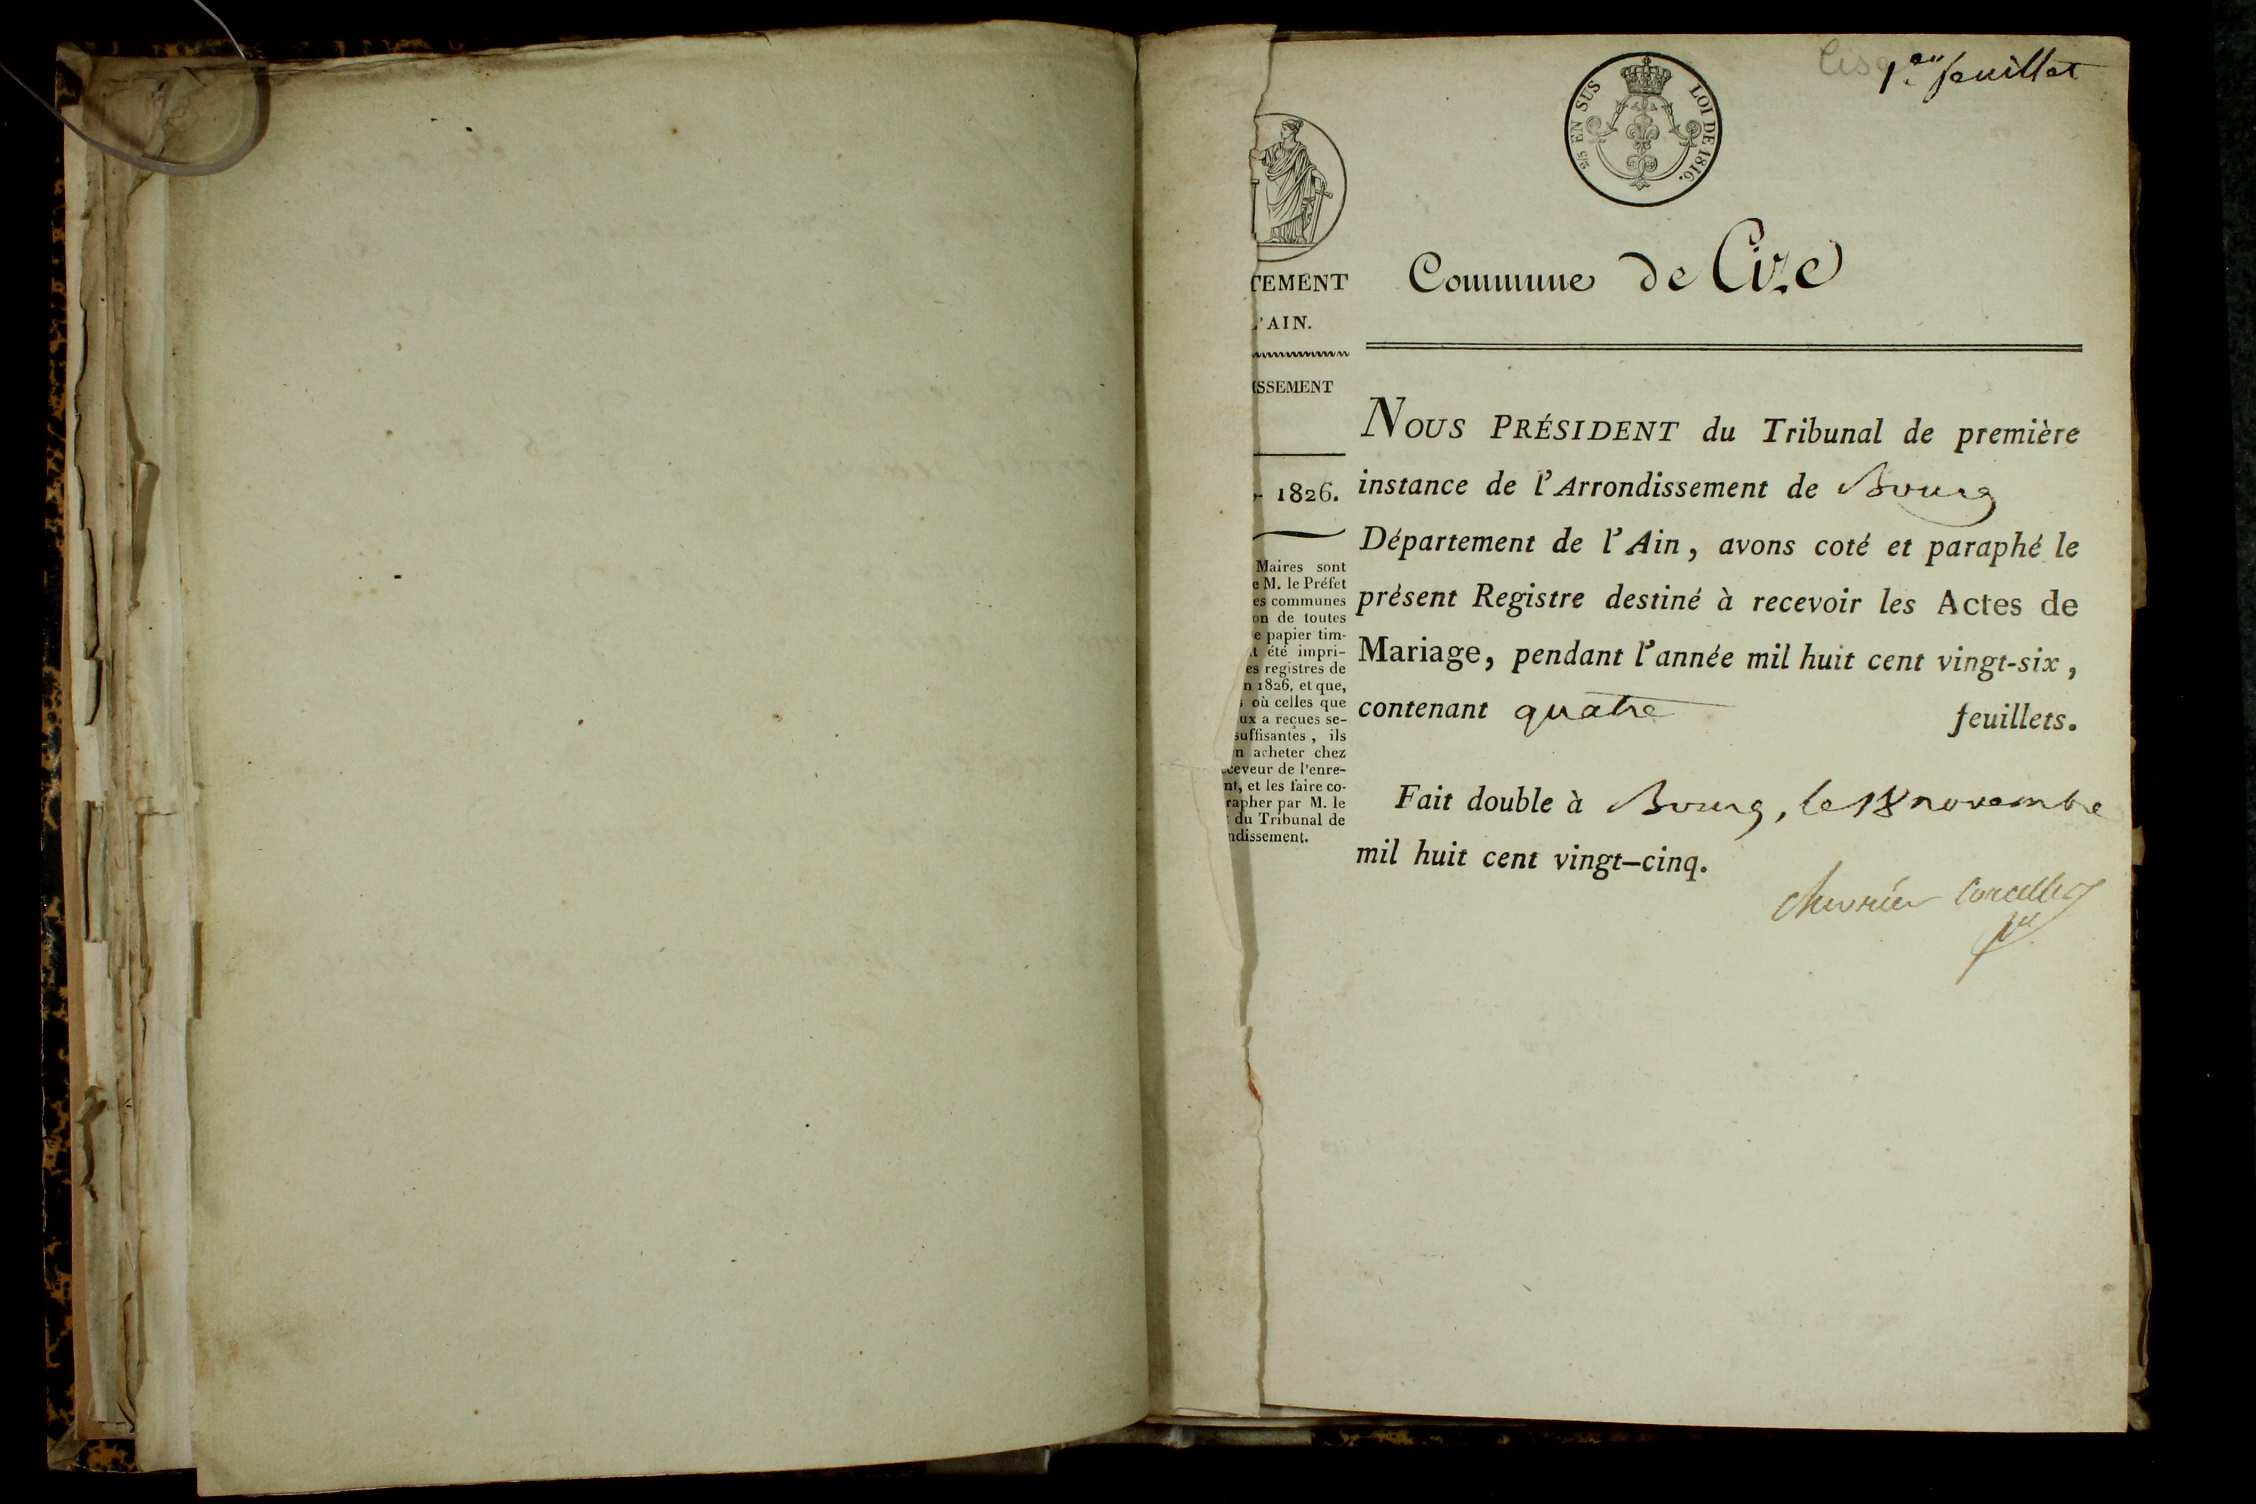 1.er feuillet
2/5 EN SUS LOI DE 1816.
Commune de Cize
TEMENT
L'AIN.
ISSEMENT
1826.
Maires sont
e M. le Préfet
es communes
on de toutes
e papier tim-
t été impri-
es registres de
n 1826, et que,
où celles que
ux a reçues se-
suffisantes, ils
n acheter chez
ceveur de l'enre-
nt, et les faire co-
rapher par M. le
du Tribunal de
ndissement.
Nous PRÉSIDENT du Tribunal de première
instance de l'Arrondissement de Bourg
Département de l'Ain, avons coté et paraphé le
présent Registre destiné à recevoir les Actes de
Mariage, pendant l'année mil huit cent vingt-six,
contenant quatre feuillets.
Fait double à Bourg, le 18 novembre
mil huit cent vingt-cinq.
Chevrier Corcelles